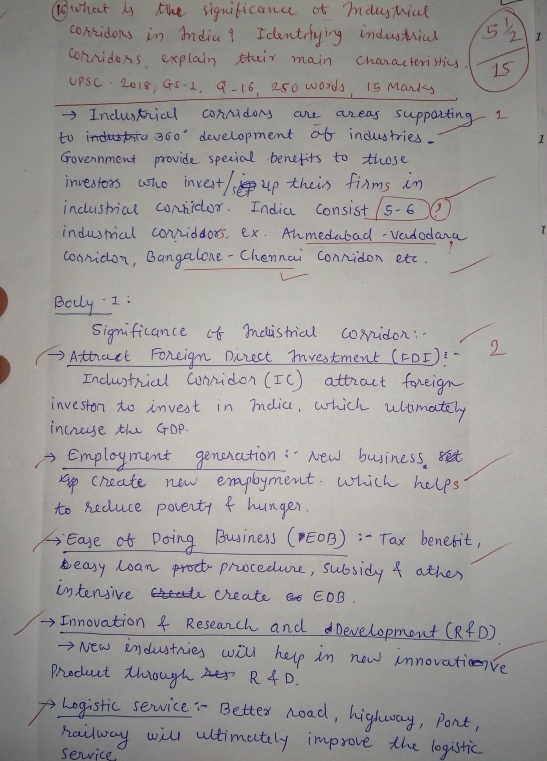 (16) What is the significance of Industrial
corridors in India? Identifying industrial
corridors, explain their main characteristics.
UPSC-2018, GS-1, Q-16, 250 words, 15 Marks
5 1/2
15
→ Industrial corridors are areas supporting
1
to industria 360° development of industries.
Government provide special benefits to those
investors who invest/set up their firms in
industrial corridor. India consist 5-6 ?
industrial corriddors. ex. Ahmedabad-Vadodara
?
corridor, Bangalore-Chennai corridor etc.
Body-1:
Significance of Industrial corridor:-
→ Attract Foreign Direct Investment (FDI):-
2
Industrial Corridor (IC) attract foreign
investor to invest in India, which ultimately
increase the GDP.
→ Employment generation :- New business set
up create new employment. which helps
to reduce poverty & hunger.
→ Ease of Doing Business (EOB) :- Tax benefit,
easy loan proct procedure, subsidy & other
intensive create create EOB.
→ Innovation & Research and Development (R&D)
→ New industries will help in new innovative
Product through R & D.
→ Logistic service:- Better road, highway, Port,
railway will ultimately improve the logistic
service
1
1
1